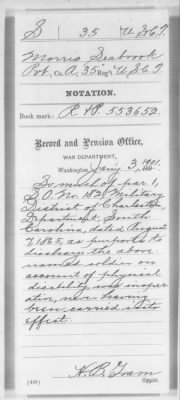 S | 35 | U.S.C.T.
Morris Seabrook
Pvt., Co. A, 35 Reg't U.S.C.T.
NOTATION.
Book mark: R & P. 553653
Record and Pension Office,
WAR DEPARTMENT,
Washington, Jany 3, 1901.
So much of par. 1,
S.O. No. 182, Military
District of Charleston,
Department South
Carolina, dated August
7, 1865, as purports to
discharge the above-
named soldier on
account of physical
disability, was inoper-
ative, never having
been carried into
effect.
Copyist.